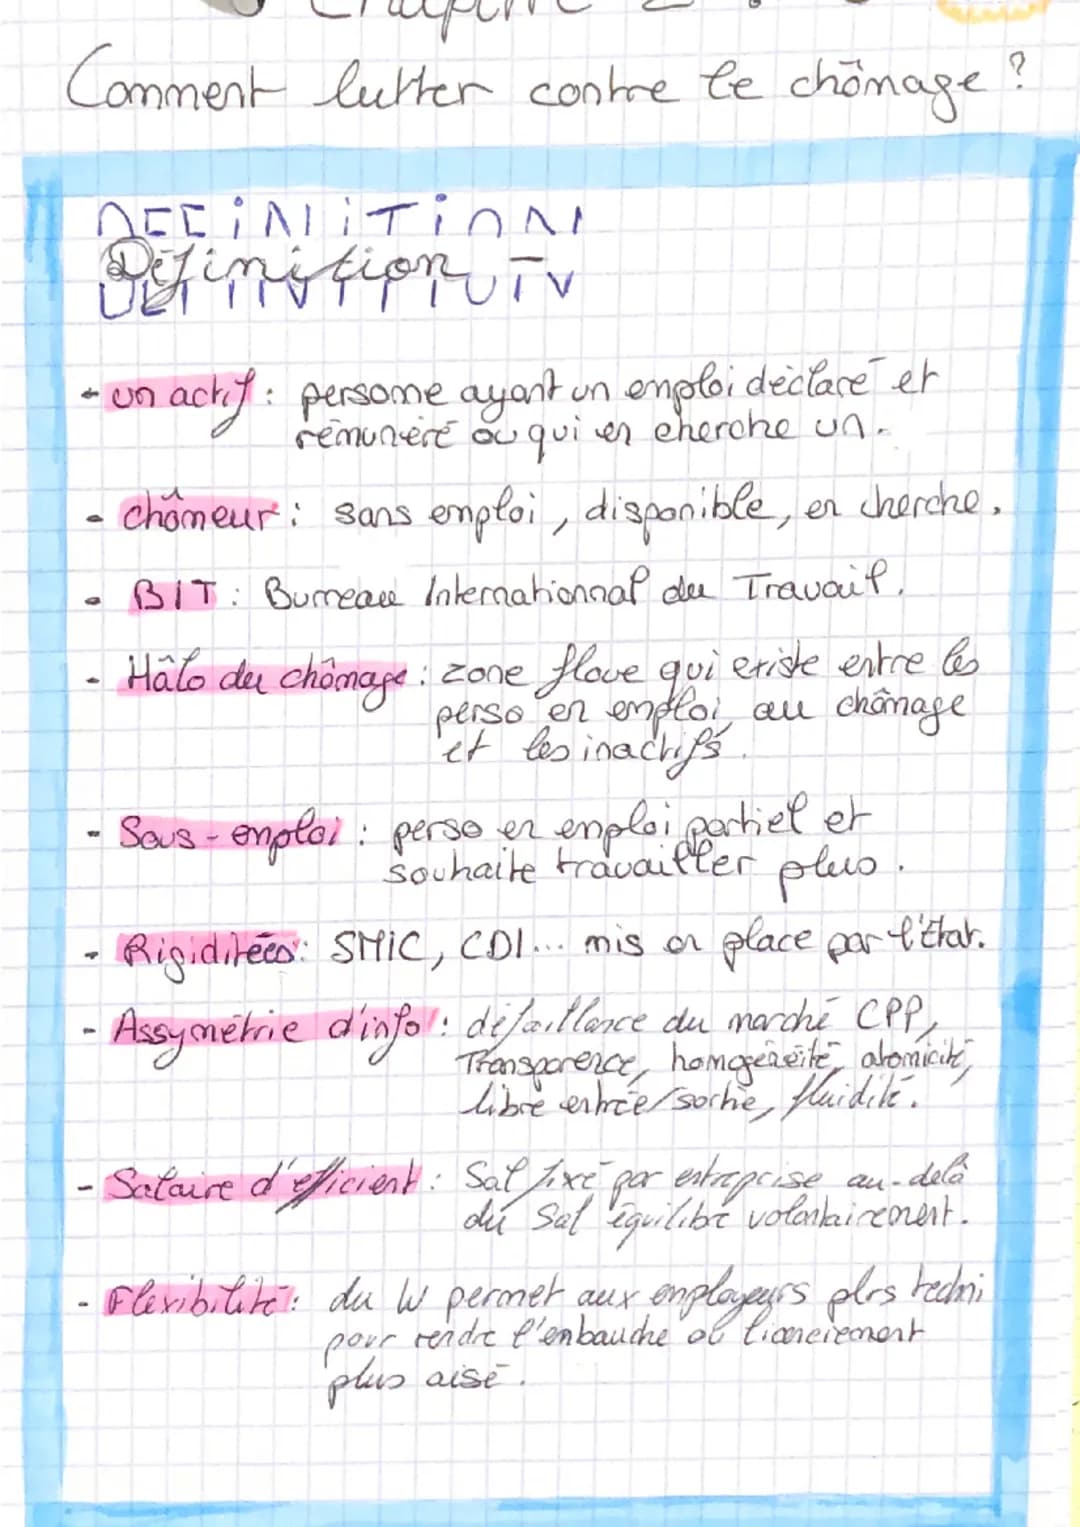 Chapitre 2 :
Comment lutter contre le chômage ?
DEFINITION
Définition
- un actif : personne ayant un emploi déclaré et
rémunéré ou qui en cherche un.
- chômeur : sans emploi, disponible, en cherche.
- BIT : Bureau Internationnal du Travail.
- Hâlo du chômage : zone floue qui existe entre les
perso en emploi, au chômage
et les inactifs.
- Sous-emploi : perso en emploi partiel et
souhaite travailler plus.
- Rigiditées : SMIC, CDI... mis en place par l'État.
- Assymétrie d'info : défaillance du marché CPP,
Transparence, homogénéité, atomicité,
libre entrée/sortie, fluidité.
- Salaire d'efficient : Sal fixé par entreprise au-delà
du Sal équilibré volontairement.
- Flexibilité : du W permet aux employeurs plrs techni
pour rendre l'embauche ou licenciement
plus aisé.